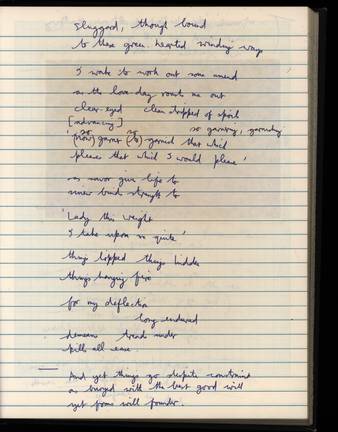 sluggard, though bound
to these green-hearted winding ways
I wake to work out some amend
as the love-day roots me out
clear-eyed clean stripped of spoil
[advancing]
so garnering, garnering
(now) garner (to) garnish that which
pleases that which I would please'
as never give life to
never bind strength to
'Lady this weight
I take upon so quite'
things lopped things hidden
things hanging fire
for my deflection
long-endured
demeans treads under
kills all ease.
And yet things go despite constraint
as buoyed with the best good will
yet some will founder.